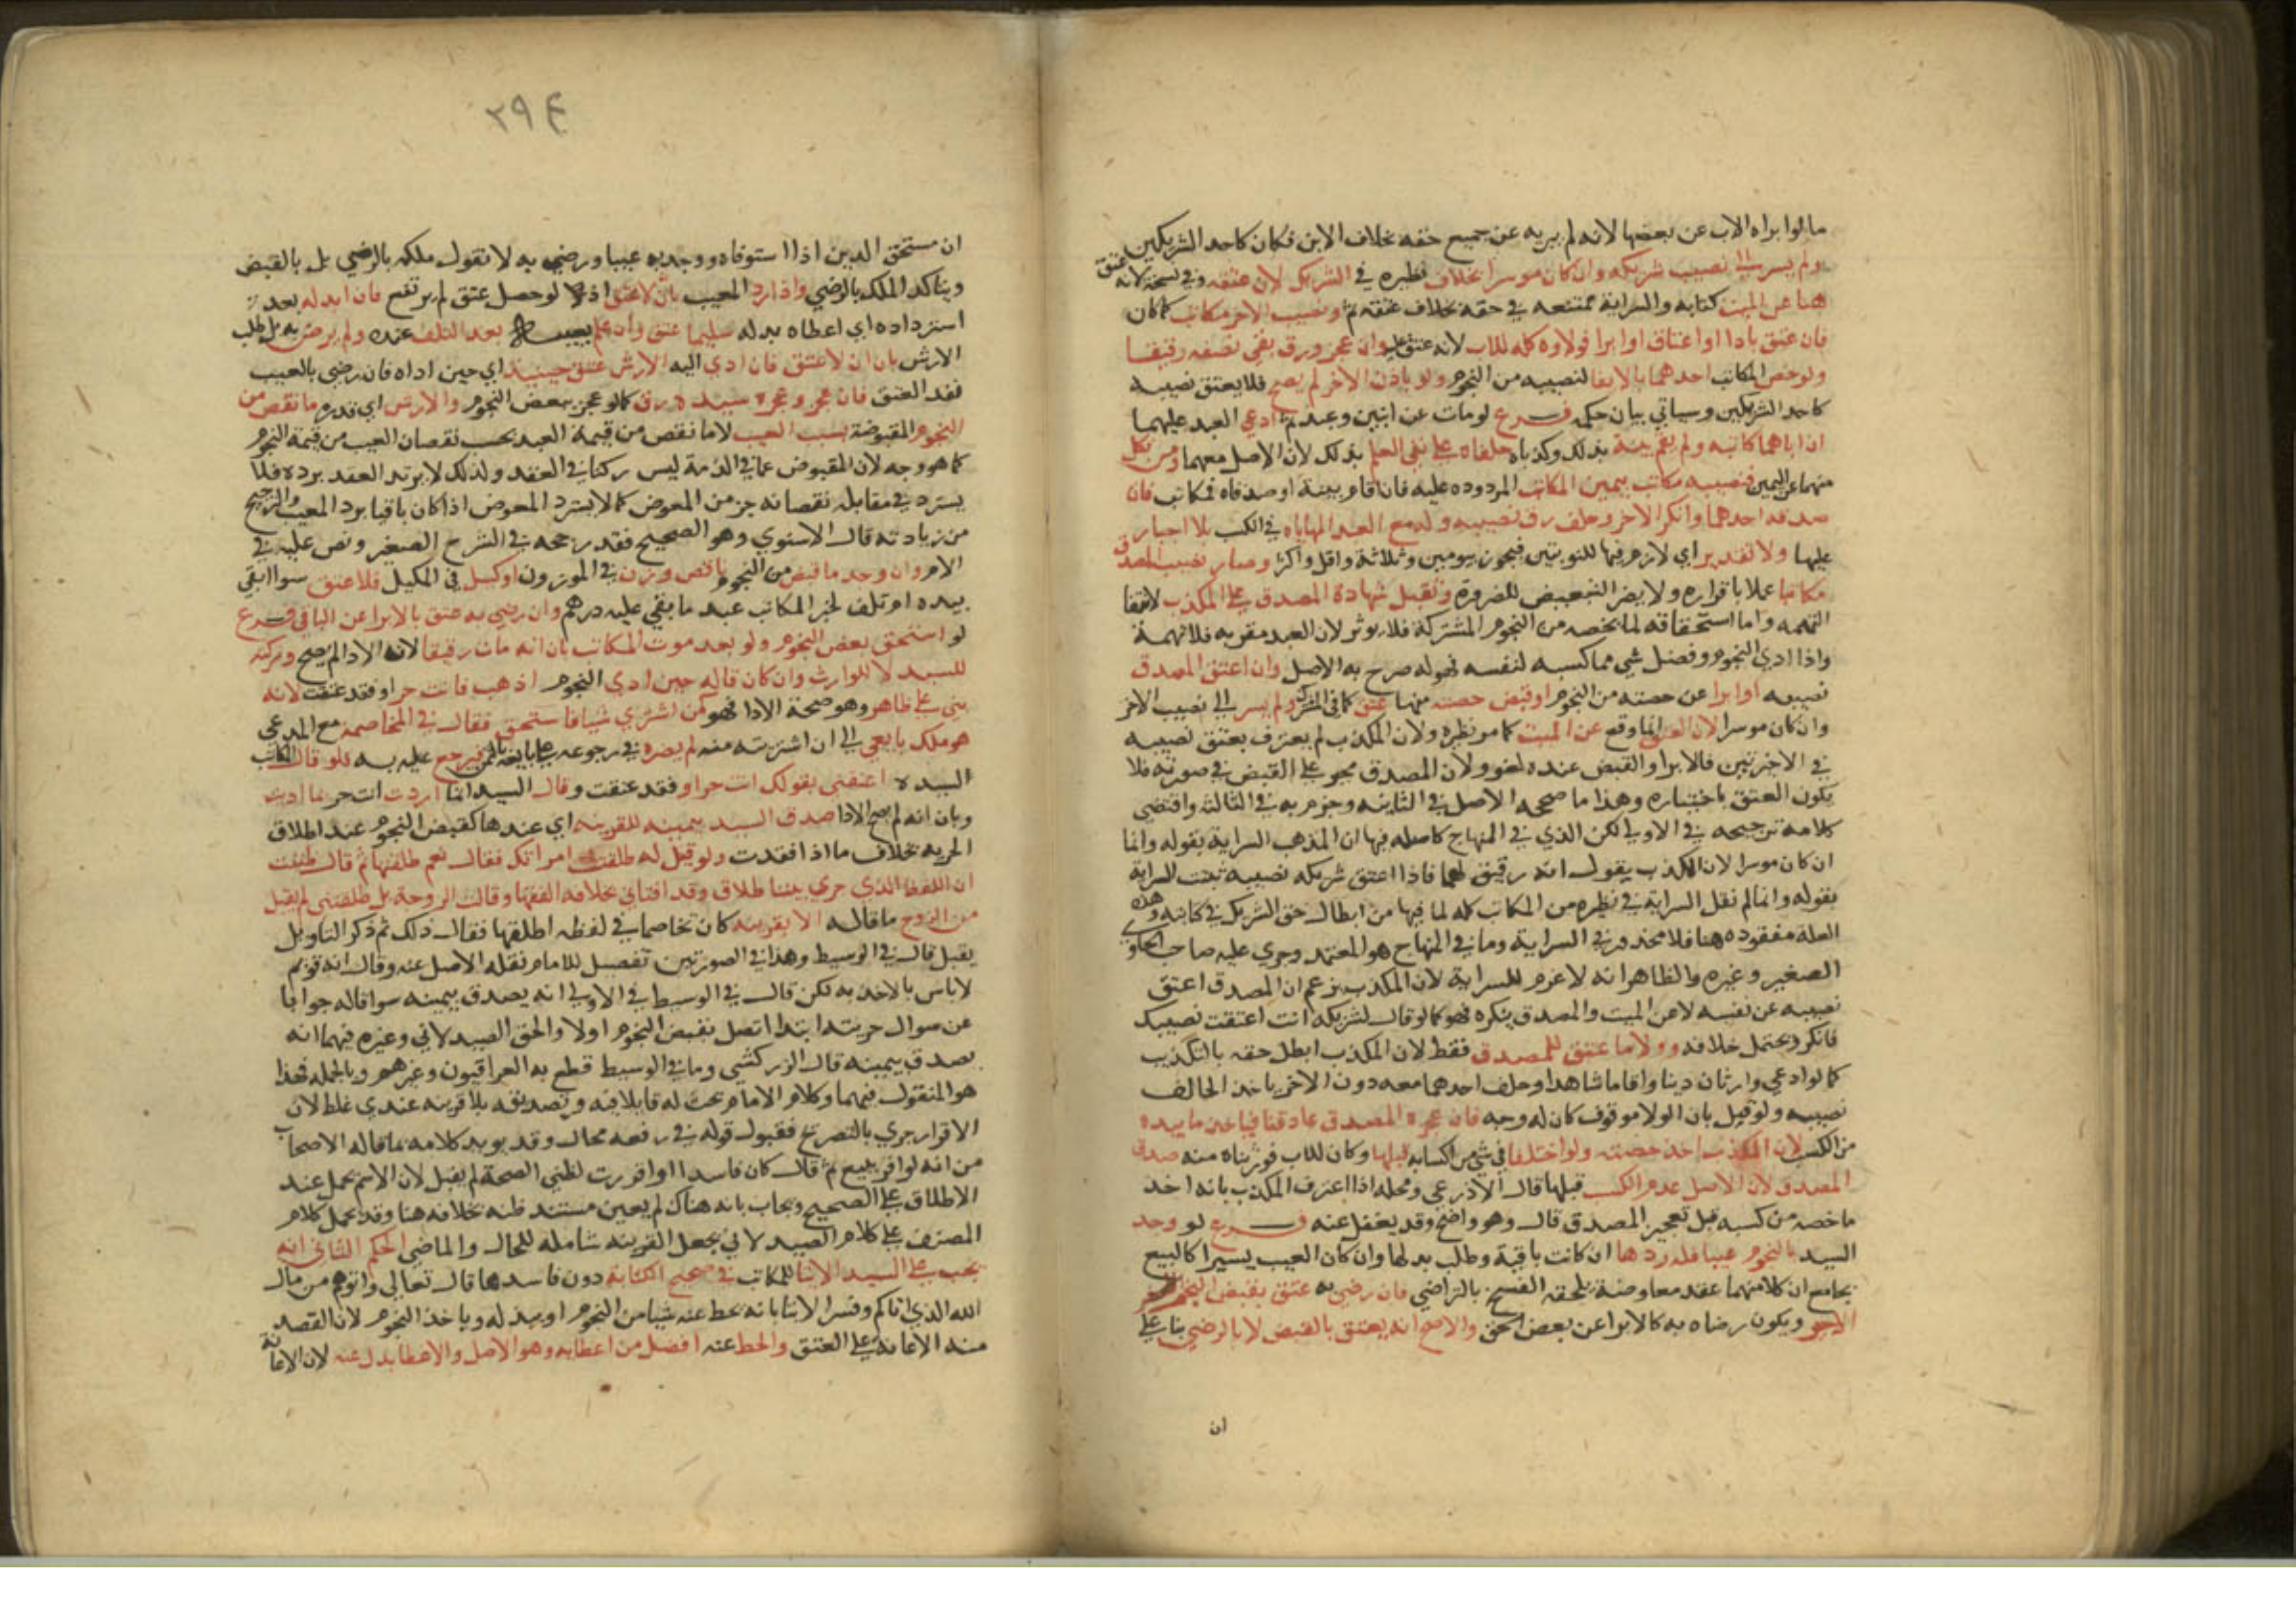 ما لوا براه الاب عن بعضها لانه لم يبريه عن جميع حقه بخلاف الابن فكان كاحد الشريكين
ولم يسر الى نصيب شريكه وان كان موسرا بخلاف نظيره في الشريك لان عتقه وفي نسخة لانه عتق
هنا عن الميت كتابه والسراية ممتنعه في حقه بخلاف عتقه ثم ونصيب الاخر مكاتب كما كان
فان عتق بادا او اعتاق او ابرا فولاوه كله للاب لانه عتق عليه وان عجز ورق بقي نصفه رقيقا
ولو خص المكاتب احدهما بالايفا لنصيبه من النجوم ولو باذن الاخر لم يصح فلا يعتق نصيبه
كاحد الشريكين وسياتي بيان حكمه فرع لو مات عن ابنين وعبد ثم ادعى العبد عليهما
ان اباهما كاتبه ولم يقم بينة بذلك وكذباه حلفاه على نفي العلم بذلك لان الاصل معهما ومن نكل
منهما عن اليمين فنصيبه مكاتب بيمين المكاتب المردوده عليه فان اقام بينة او صدقاه فمكاتب فان
صدقه احدهما وانكر الاخر وحلف رق نصيبيه وله مع العبد المهاياه في الكسب بلا اجبار
عليها ولا تقدير اي لازم فيها للنوبتين فيجوز بيومين وثلاثة واقل واكثر وصار نصيب المصدق
مكاتبا عملا باقراره ولا يضر التبعيض للضرورة وتقبل شهادة المصدق على المكذب لانتفا
التهمه واما استحقاقه لما يخصه من النجوم المشتركة فلا يوثر لان العبد مقر به فلا تهمة
واذا ادى النجوم وفضل شي مما كسبه لنفسه فهو له صرح به الاصل وان اعتق المصدق
نصيبه او ابرا عن حصته من النجوم او قبض حصته منها عتق كما في المشترك ولم يسر الى نصيب الاخر
وان كان موسرا لان العتق انما وقع عن الميت كما مر نظيره ولان المكذب لم يعترف بعتق نصيبه
في الاخرتين فالابرا والقبض عنده لغو ولان المصدق مجبو على القبض في صورته فلا
يكون العتق باختياره وهذا ما صححه الاصل في الثانيه وجزم به في الثالثة واقتضى
كلامه ترجيحه في الاولى لكن الذي في المنهاج كاصله فيها ان المذهب السراية بقوله وانما
ان كان موسرا لان المكذب يقول انه رقيق لهما فاذا اعتق شريكه نصيبه ثبتت السراية
بقوله وانما لم نقل السراية في نظيره من المكاتب كله لما فيها من ابطال حق الشريك في كتابته وهذه
العلة مفقوده هنا فلا محذور في السراية وما في المنهاج هو المعتمد وجرى عليه صاحب الحاوي
الصغير وغيره والظاهر انه لا غرم للسراية لان المكذب يزعم ان المصدق اعتق
نصيبه عن نفسه لا عن الميت والمصدق ينكره فهو كما لو قال لشريكه انت اعتقت نصيبك
فانكر ويحتمل خلافه وولا ما عتق للمصدق فقط لان المكذب ابطل حقه بالتكذيب
كما لو ادعى وارثان دينا واقاما شاهدا وحلف احدهما معه دون الاخر ياخذ الحالف
نصيبه ولو قيل بان الولا موقوف كان له وجه فان عجزه المصدق عاد قنا فياخذ ما بيده
من الكسب لان المكذب اخذ حصته ولو اختلفا في شي من اكسابه قبلها وكان للاب فورثناه منه صدق
المصدق لان الاصل عدم الكسب قبلها قال الاذرعي ومحله اذا اعترف المكذب بانه اخذ
ما خصه من كسبه قبل تعجيز المصدق قال وهو واضح وقد يغفل عنه فرع لو وجد
السيد بالنجوم عيبا فله ردها ان كانت باقية وطلب بدلها وان كان العيب يسيرا كالبيع
بجامع ان كلا منهما عقد معاوضة يلحقه الفسخ بالتراضي فان رضي به عتق بقبض النجم
الاخير ويكون رضاه به كالابرا عن بعض الحق والاصح انه يعتق بالقبض لا بالرضي بنا على
ان
٢٩٤
ان مستحق الدين اذا استوفاه ووجد به عيبا ورضي به لا نقول ملكه بالرضي بل بالقبض
ويتاكد الملك بالرضي واذا رد المعيب بان لا عتق اذ لو حصل عتق لم يرتفع فان ابدله بعد
استرداده اي اعطاه بدله سليما عتق وان علم بعيبه بعد التلف عنده ولم يرض به بل طلب
الارش بان ان لا عتق فان ادى اليه الارش عتق حينيذ اي حين اداه فان رضي بالعيب
نفذ العتق فان عجز وعجزه سيده رق كما لو عجز ببعض النجوم والارش اي قدره ما نقص من
النجوم المقبوضة بسبب العيب لا ما نقص من قيمة العبد بحسب نقصان العيب من قيمة النجوم
كما هو وجه لان المقبوض عما في الذمة ليس ركنا في العقد ولذلك لا يرتد العقد برده فلا
يسترد في مقابلة نقصانه جز من المعوض كما لا يسترد المعوض اذا كان باقيا برد المعيب والترجيح
من زيادته قال الاسنوي وهو الصحيح فقد رجحه في الشرح الصغير ونص عليه في
الام وان وجد ما قبض من النجوم ناقص وزن في الموزون او كيل في المكيل فلا عتق سوا ابقي
بيده ام تلف لخبر المكاتب عبد ما بقي عليه درهم وان رضي به عتق بالابرا عن الباقي فرع
لو استحق بعض النجوم ولو بعد موت المكاتب بان انه مات رقيقا لان الادا لم يصح وتركته
للسيد لا للوارث وان كان قاله حين ادى النجوم اذهب فانت حر او فقد عتقت لانه
بنى على ظاهر وهو صحة الادا فهو كمن اشترى شيا فاستحق فقال في المخاصمة مع المدعي
هو ملك بايعي الى ان اشتريته منه لم يضره في رجوعه على بايعه بالثمن فيرجع عليه به فلو قال المكاتب
لسيده اعتقتني بقولك انت حر او فقد عتقت وقال السيد انما اردت انت حر بما اديت
وبان انه لم يصح الادا صدق السيد بيمينه للقرينة اي عندها كقبض النجوم عند اطلاق
الحرية بخلاف ما اذا فقدت ولو قيل له طلقت امراتك فقال نعم طلقتها ثم قال ظننت
ان اللفظ الذي جرى بيننا طلاق وقد افتاني بخلافه الفقها وقالت الزوجة بل طلقتني لم يقبل
من الزوج ما قاله الا بقرينة كان تخاصما في لفظه اطلقها فقال ذلك ثم ذكر التاويل
يقبل قال في الوسيط وهذا في الصورتين تفصيل للامام نقله الاصل عنه وقال انه قويم
لا باس بالاخذ به لكن قال في الوسيط في الاولى انه يصدق بيمينه سوا قاله جوابا
عن سوال حريته ابتدا اتصل بقبض النجوم اولا والحق الصيدلاني وغيره فيهما انه
يصدق بيمينه قال الزركشي وما في الوسيط قطع به العراقيون وغيرهم وبالجملة فهذا
هو المنقول فيهما وكلام الامام بحث له قابلا فيه وتصديقه بلا قرينة عندي غلط لان
الاقرار جرى بالتصريح فقبول قوله في رفعه محال وقد يويد كلامه بما قاله الاصحاب
من انه لو اقر ببيع ثم قال كان فاسدا او اقررت لظني الصحة لم يقبل لان الاسم يحمل عند
الاطلاق على الصحيح ويجاب بانه هناك لم يعين مستند ظنه بخلافه هنا وقد يحمل كلام
المصنف على كلام الصيدلاني بجعل القرينة شاملة للحال والماضي الحكم الثاني انه
يجب على السيد الايتا للمكاتب في صحيح الكتابة دون فاسدها قال تعالى واتوهم من مال
الله الذي اتاكم وفسر الايتا بانه يحط عنه شيا من النجوم او يبذله وياخذ النجوم لان القصد
منه الاعانة على العتق والحط عنه افضل من اعطايه وهو الاصل والاعطا بدل عنه لان الاعانة